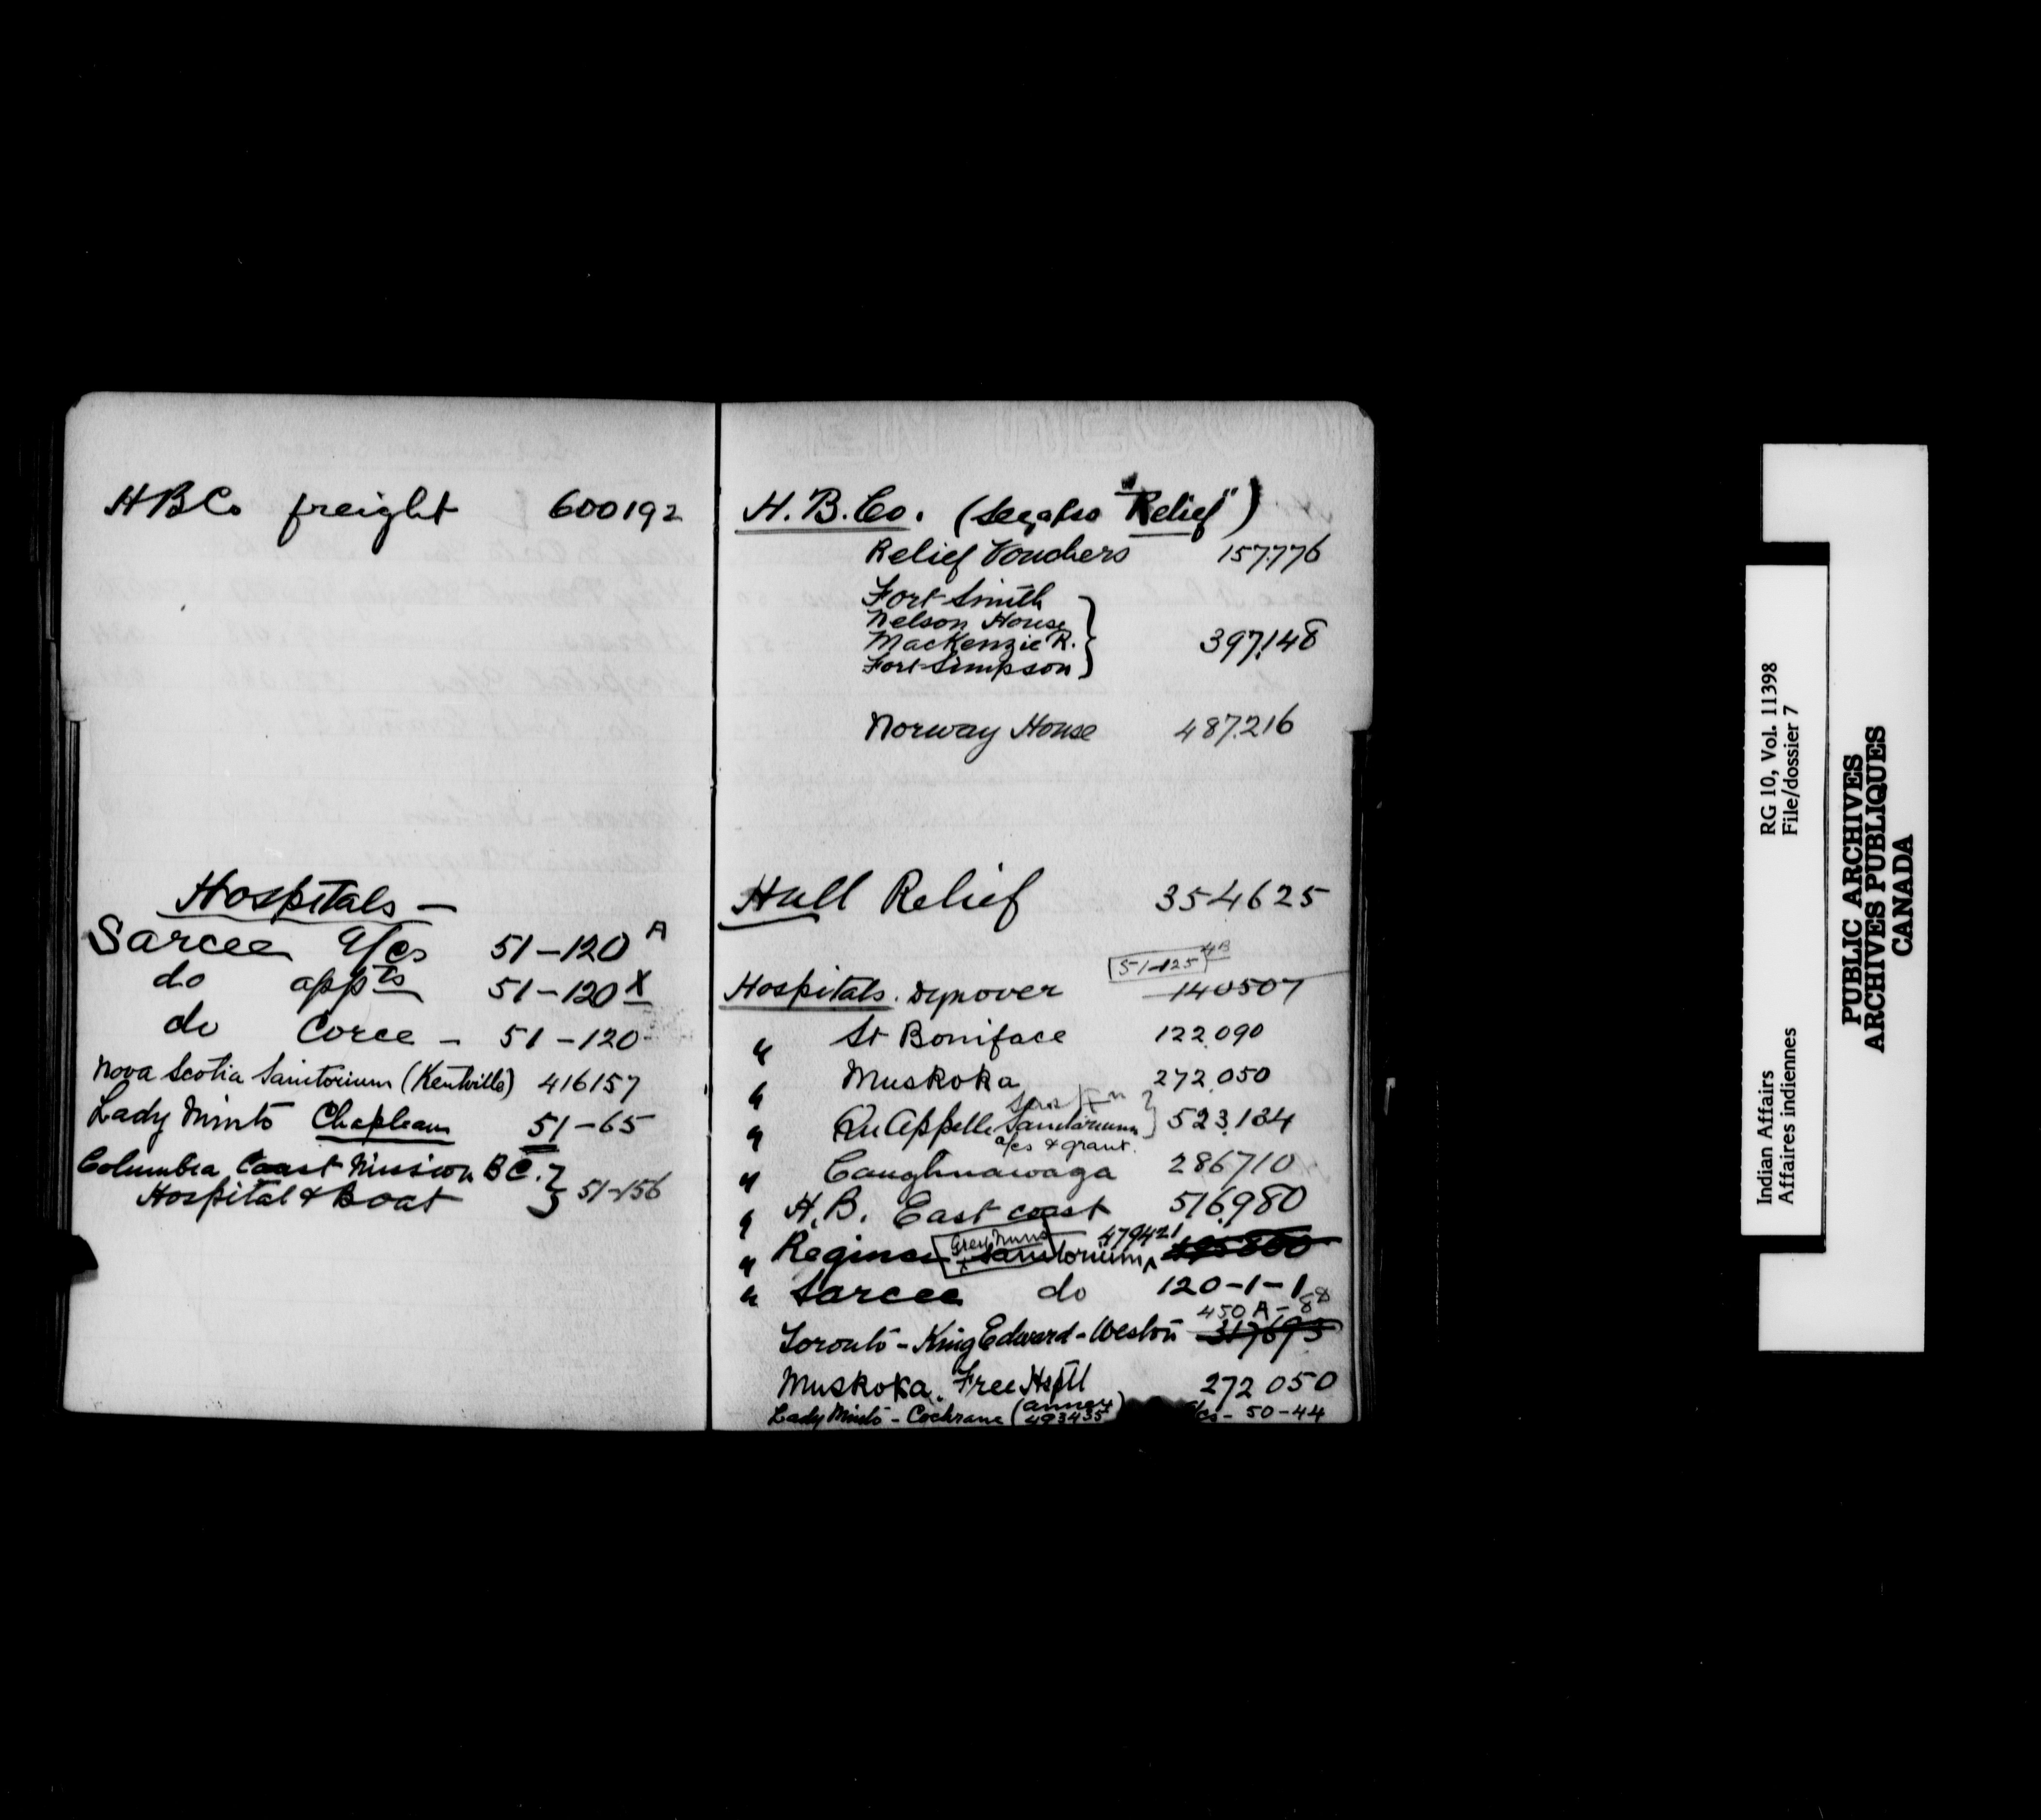 HBCo freight 600192
Hospitals –
Sarcee a/cs 51-120 A
do appts 51-120 X
do Corce – 51-120
Nova Scotia Sanitorium (Kentville) 416157
Lady Minto Chapleau 51-65
Columbia Coast Mission BC. } 51-156
Hospital & Boat
H.B.Co. (See also "Relief")
Relief Vouchers 157,776
Fort Smith
Nelson House
MacKenzie R. } 397,148
Fort Simpson
Norway House 487,216
Hall Relief 354625
51-125 4B
Hospitals. Dynover 140507
" St Boniface 122,090
" Muskoka 272,050
" Qu'Appelle Sanitorium } 523,134
a/cs & grant.
" Caughnawaga 286710
" H.B. East coast 516,980
Grey Nuns 479421
" Regina Sanitorium
" Sarcee do 120-1-1
450A-88
Toronto – King Edward – Weston 317695
Muskoka. Free Hsptl 272 050
Lady Minto – Cochrane (annex 493435) a/cs – 50-44
Indian Affairs RG 10, Vol. 11398
Affaires indiennes File/dossier 7
PUBLIC ARCHIVES
ARCHIVES PUBLIQUES
CANADA